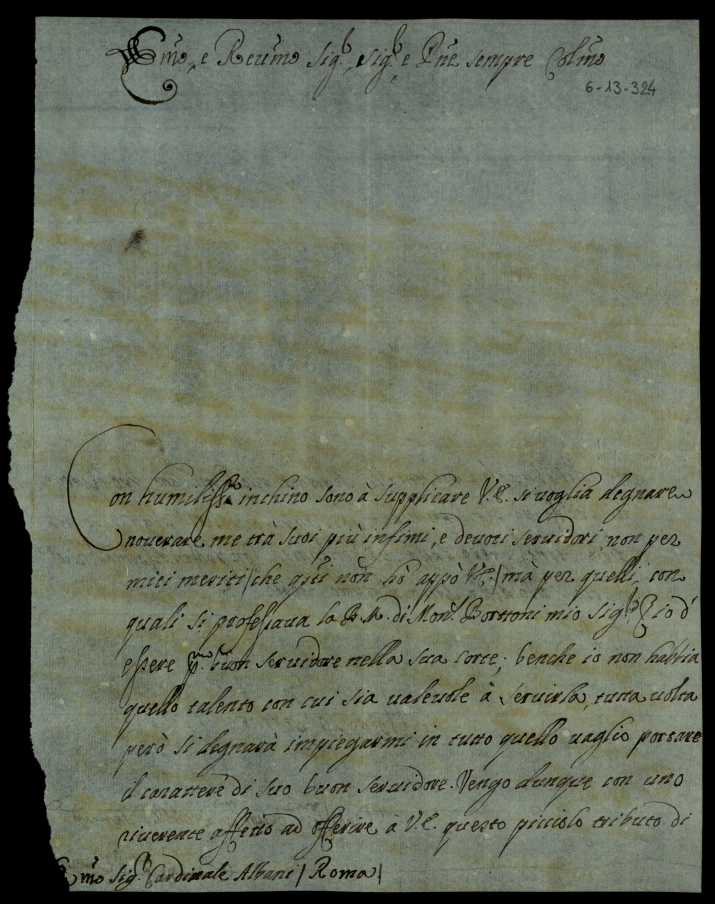 Emo, e Reumo Sig.r, e Sig.r e Pne sempre Colmo
6-13-324
Con humiliss.o inchino sono à supplicare V.E. si uoglia degnare
nouerare me trà suoi più infimi, e deuoti seruidori non per
miei meriti / che q.sti non hò appò V.E. / mà per quelli, con
quali si professaua la B.M. di Mon.r Bottoni mio Sig.r zio d'
essere buon seruidore nella sua corte; benche io non habbia
quello talento con cui sia ualeuole à seruirla, tutta uolta
però si degnarà impiegarmi in tutto quello uaglio portare
il carattere di suo buon seruidore. Vengo dunque con uno
riuerente affetto ad offerire à V.E. questo picciolo tributo di
Emo Sig.r Cardinale Albani / Roma /